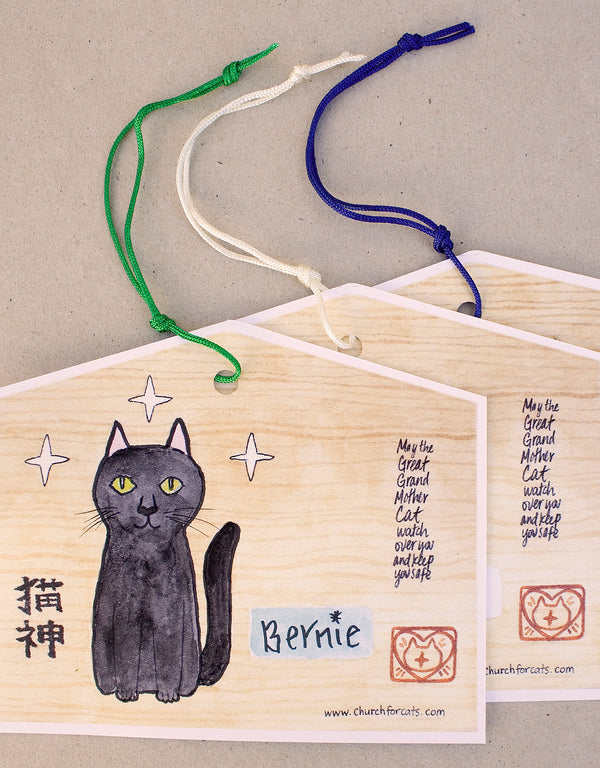 猫
神
Bernie
May the
Great
Grand
Mother
Cat
watch
over you
and keep
you safe
www.churchforcats.com
May the
Great
Grand
Mother
Cat
watch
over you
and keep
you safe
churchforcats.com